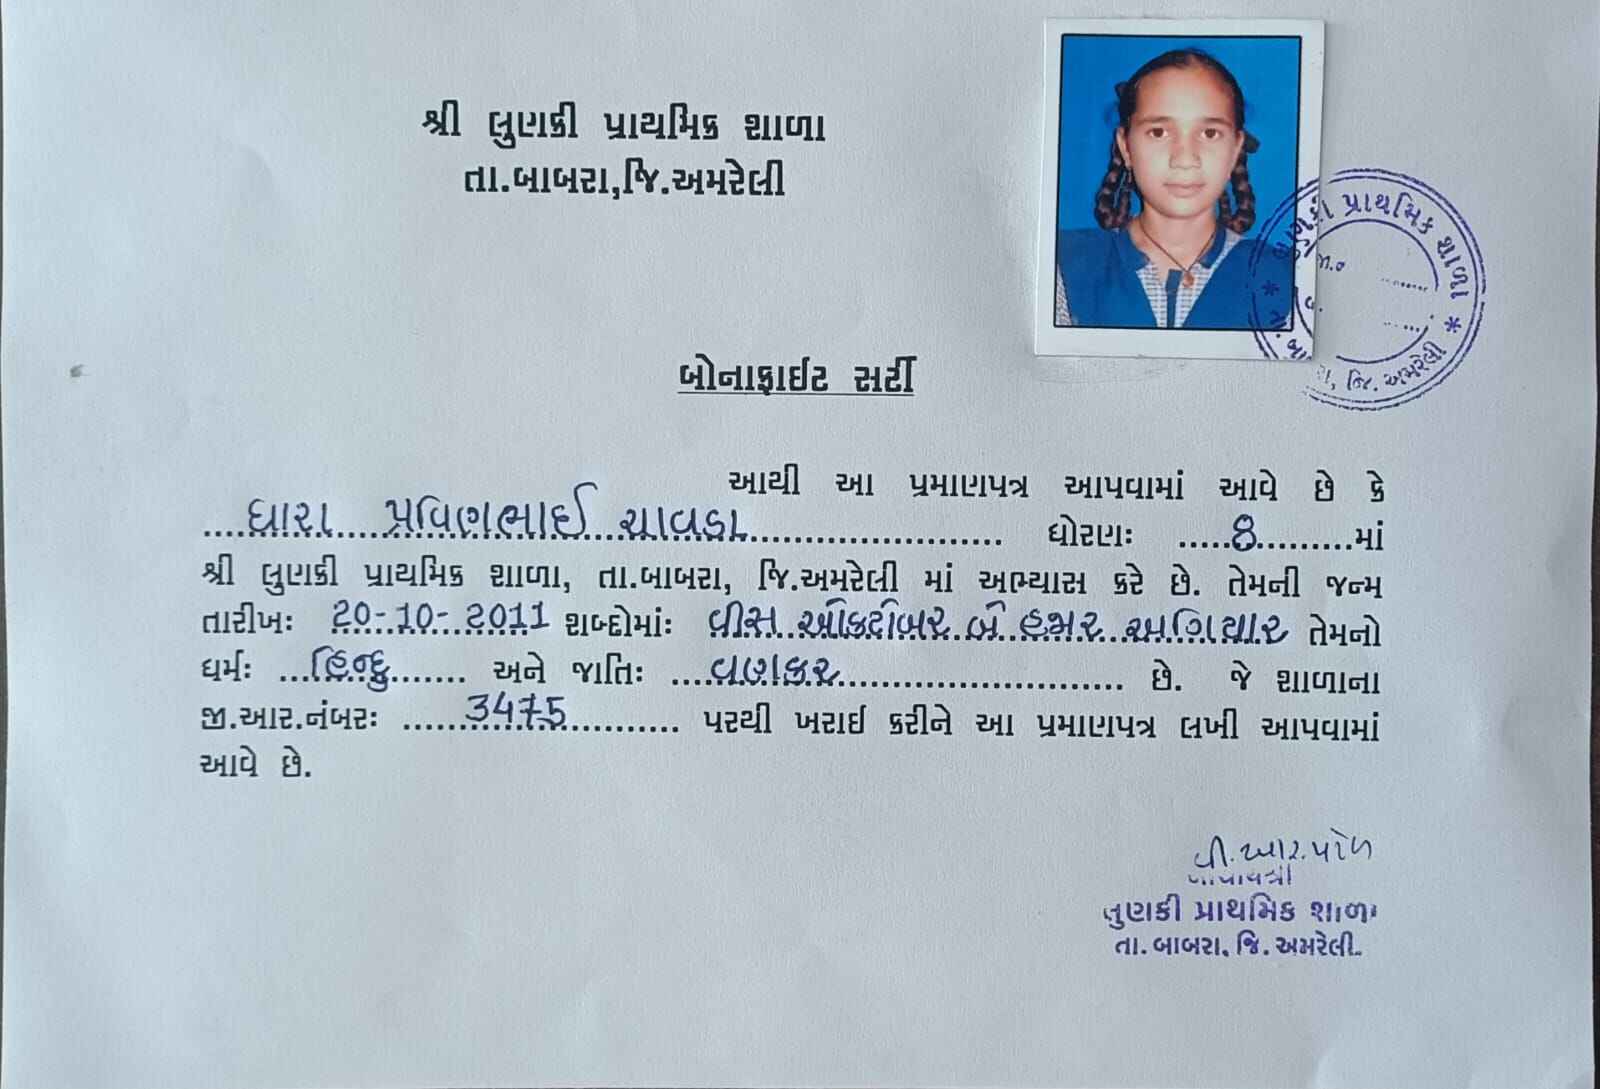 શ્રી લુણકી પ્રાથમિક શાળા
તા.બાબરા,જિ.અમરેલી
પ્રાથમિક શાળા *
જિ. અમરેલી
બોનાફાઈટ સર્ટી
આથી આ પ્રમાણપત્ર આપવામાં આવે છે કે
....ધારા....પ્રવિણભાઈ ચાવડા........................ ધોરણઃ .....8..........માં
શ્રી લુણકી પ્રાથમિક શાળા, તા.બાબરા, જિ.અમરેલી માં અભ્યાસ કરે છે. તેમની જન્મ
તારીખઃ 20-10-2011 શબ્દોમાંઃ વીસ ઓકટોબર બે હજાર અગિયાર તેમનો
ધર્મઃ ...હિન્દુ....... અને જાતિઃ ....વણકર........................... છે. જે શાળાના
જી.આર.નંબરઃ ......3475.......... પરથી ખરાઈ કરીને આ પ્રમાણપત્ર લખી આપવામાં
આવે છે.
વી.આર.પોળ
લુણકી પ્રાથમિક શાળા
તા. બાબરા, જિ. અમરેલી.